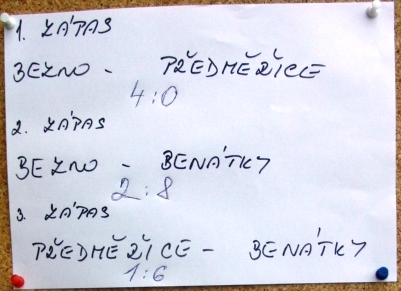 1. ZÁPAS
BEZNO - PŘEDMĚŘICE
4:0
2. ZÁPAS
BEZNO - BENÁTKY
2:8
3. ZÁPAS
PŘEDMĚŘICE - BENÁTKY
1:6